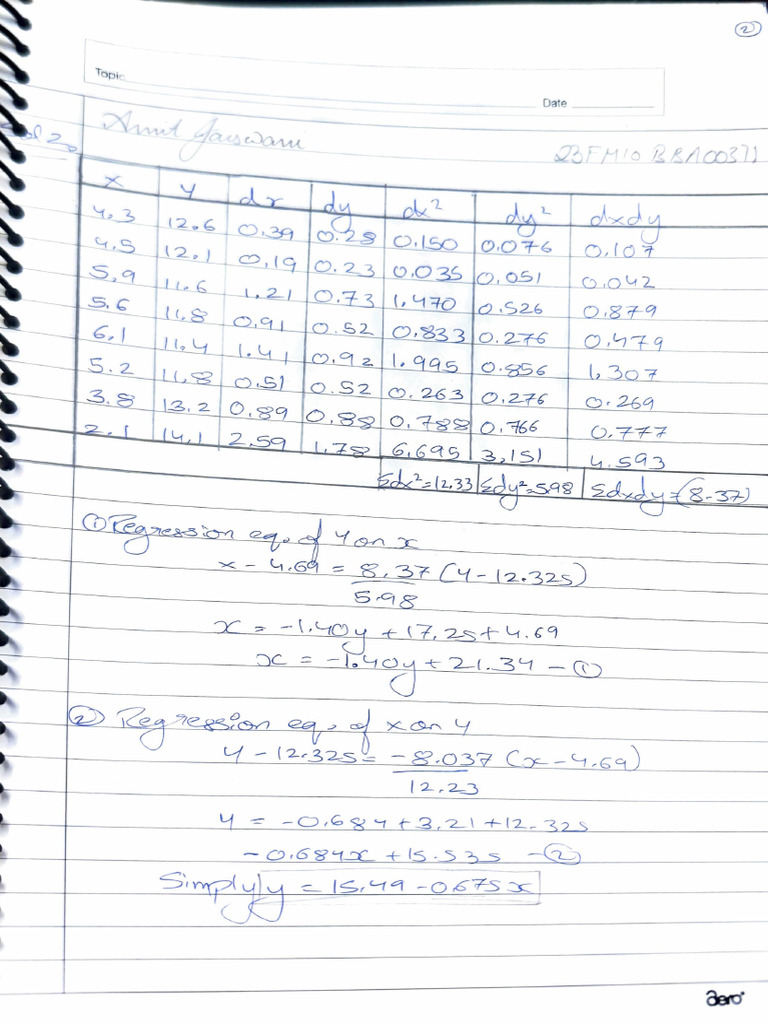 2
Topic
Date
Amit Jaiswani
23FM10BBA00371
Sol 2.
x y dx dy dx² dy² dxdy
4.3 12.6 0.39 0.28 0.150 0.076 0.107
4.5 12.1 0.19 0.23 0.035 0.051 0.042
5.9 11.6 1.21 0.73 1.470 0.526 0.879
5.6 11.8 0.91 0.52 0.833 0.276 0.479
6.1 11.4 1.41 0.92 1.995 0.856 1.307
5.2 11.8 0.51 0.52 0.263 0.276 0.269
3.8 13.2 0.89 0.88 0.788 0.766 0.777
2.1 14.1 2.59 1.78 6.695 3.151 4.593
Σdx²=12.33 Σdy²=5.98 Σdxdy=(8.37)
① Regression eq. of y on x
x - 4.69 = 8.37 (y - 12.325)
5.98
x = -1.40y + 17.25 + 4.69
x = -1.40y + 21.34 - ①
② Regression eq. of x on y
y - 12.325 = -8.037 (x - 4.69)
12.23
y = -0.684 + 3.21 + 12.325
-0.684x + 15.535 - ②
Simply y = 15.49 - 0.675x
aero